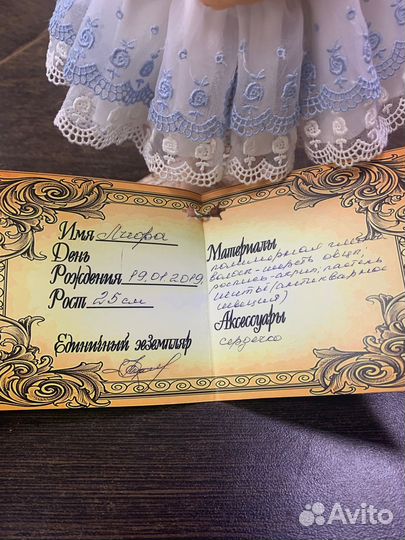 Имя Лиора
День
Рождения 19.01.2019
Рост 25 см
Единичный экземпляр
Материалы
полимерная глина,
волосы-шерсть овцы,
роспись-акрил, пастель
(антикварное
Аксессуары
сердечко
Avito